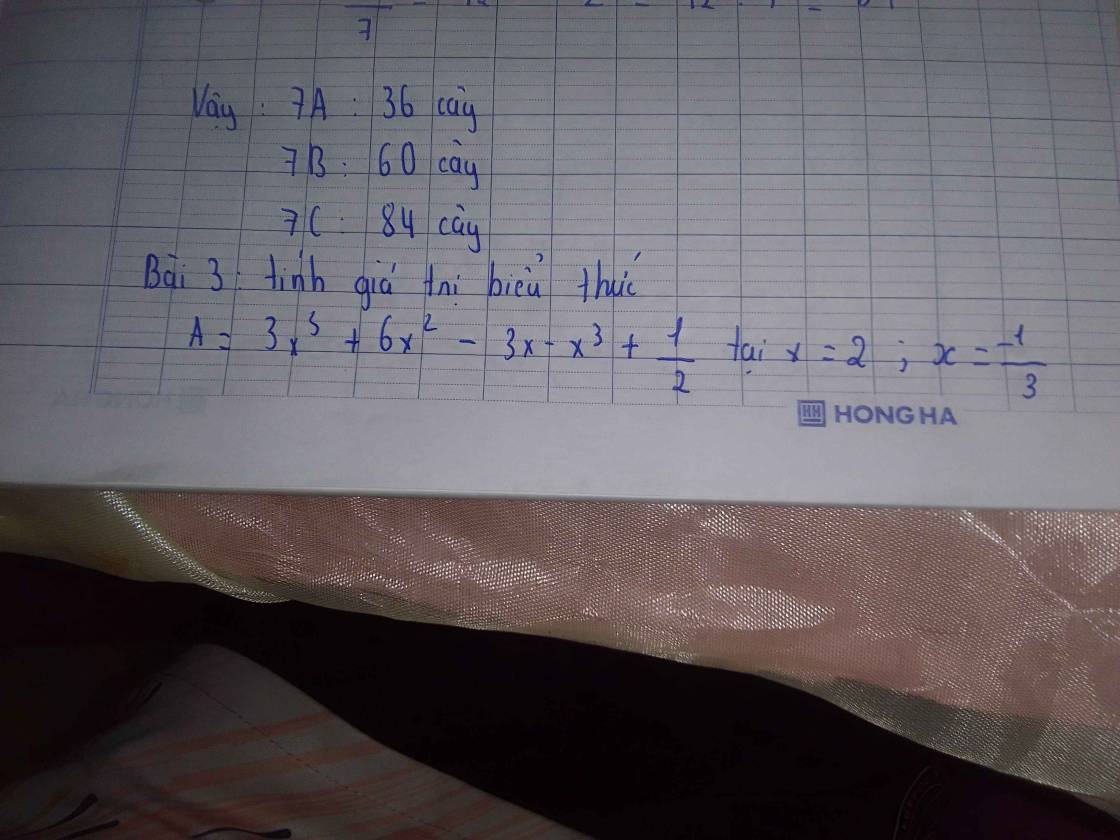 7
Vậy : 7A : 36 cây
7B : 60 cây
7C : 84 cây
Bài 3 : tính giá trị biểu thức
A = 3x³ + 6x² - 3x - x³ + 1/2 tại x = 2 ; x = -1/3
HONG HA